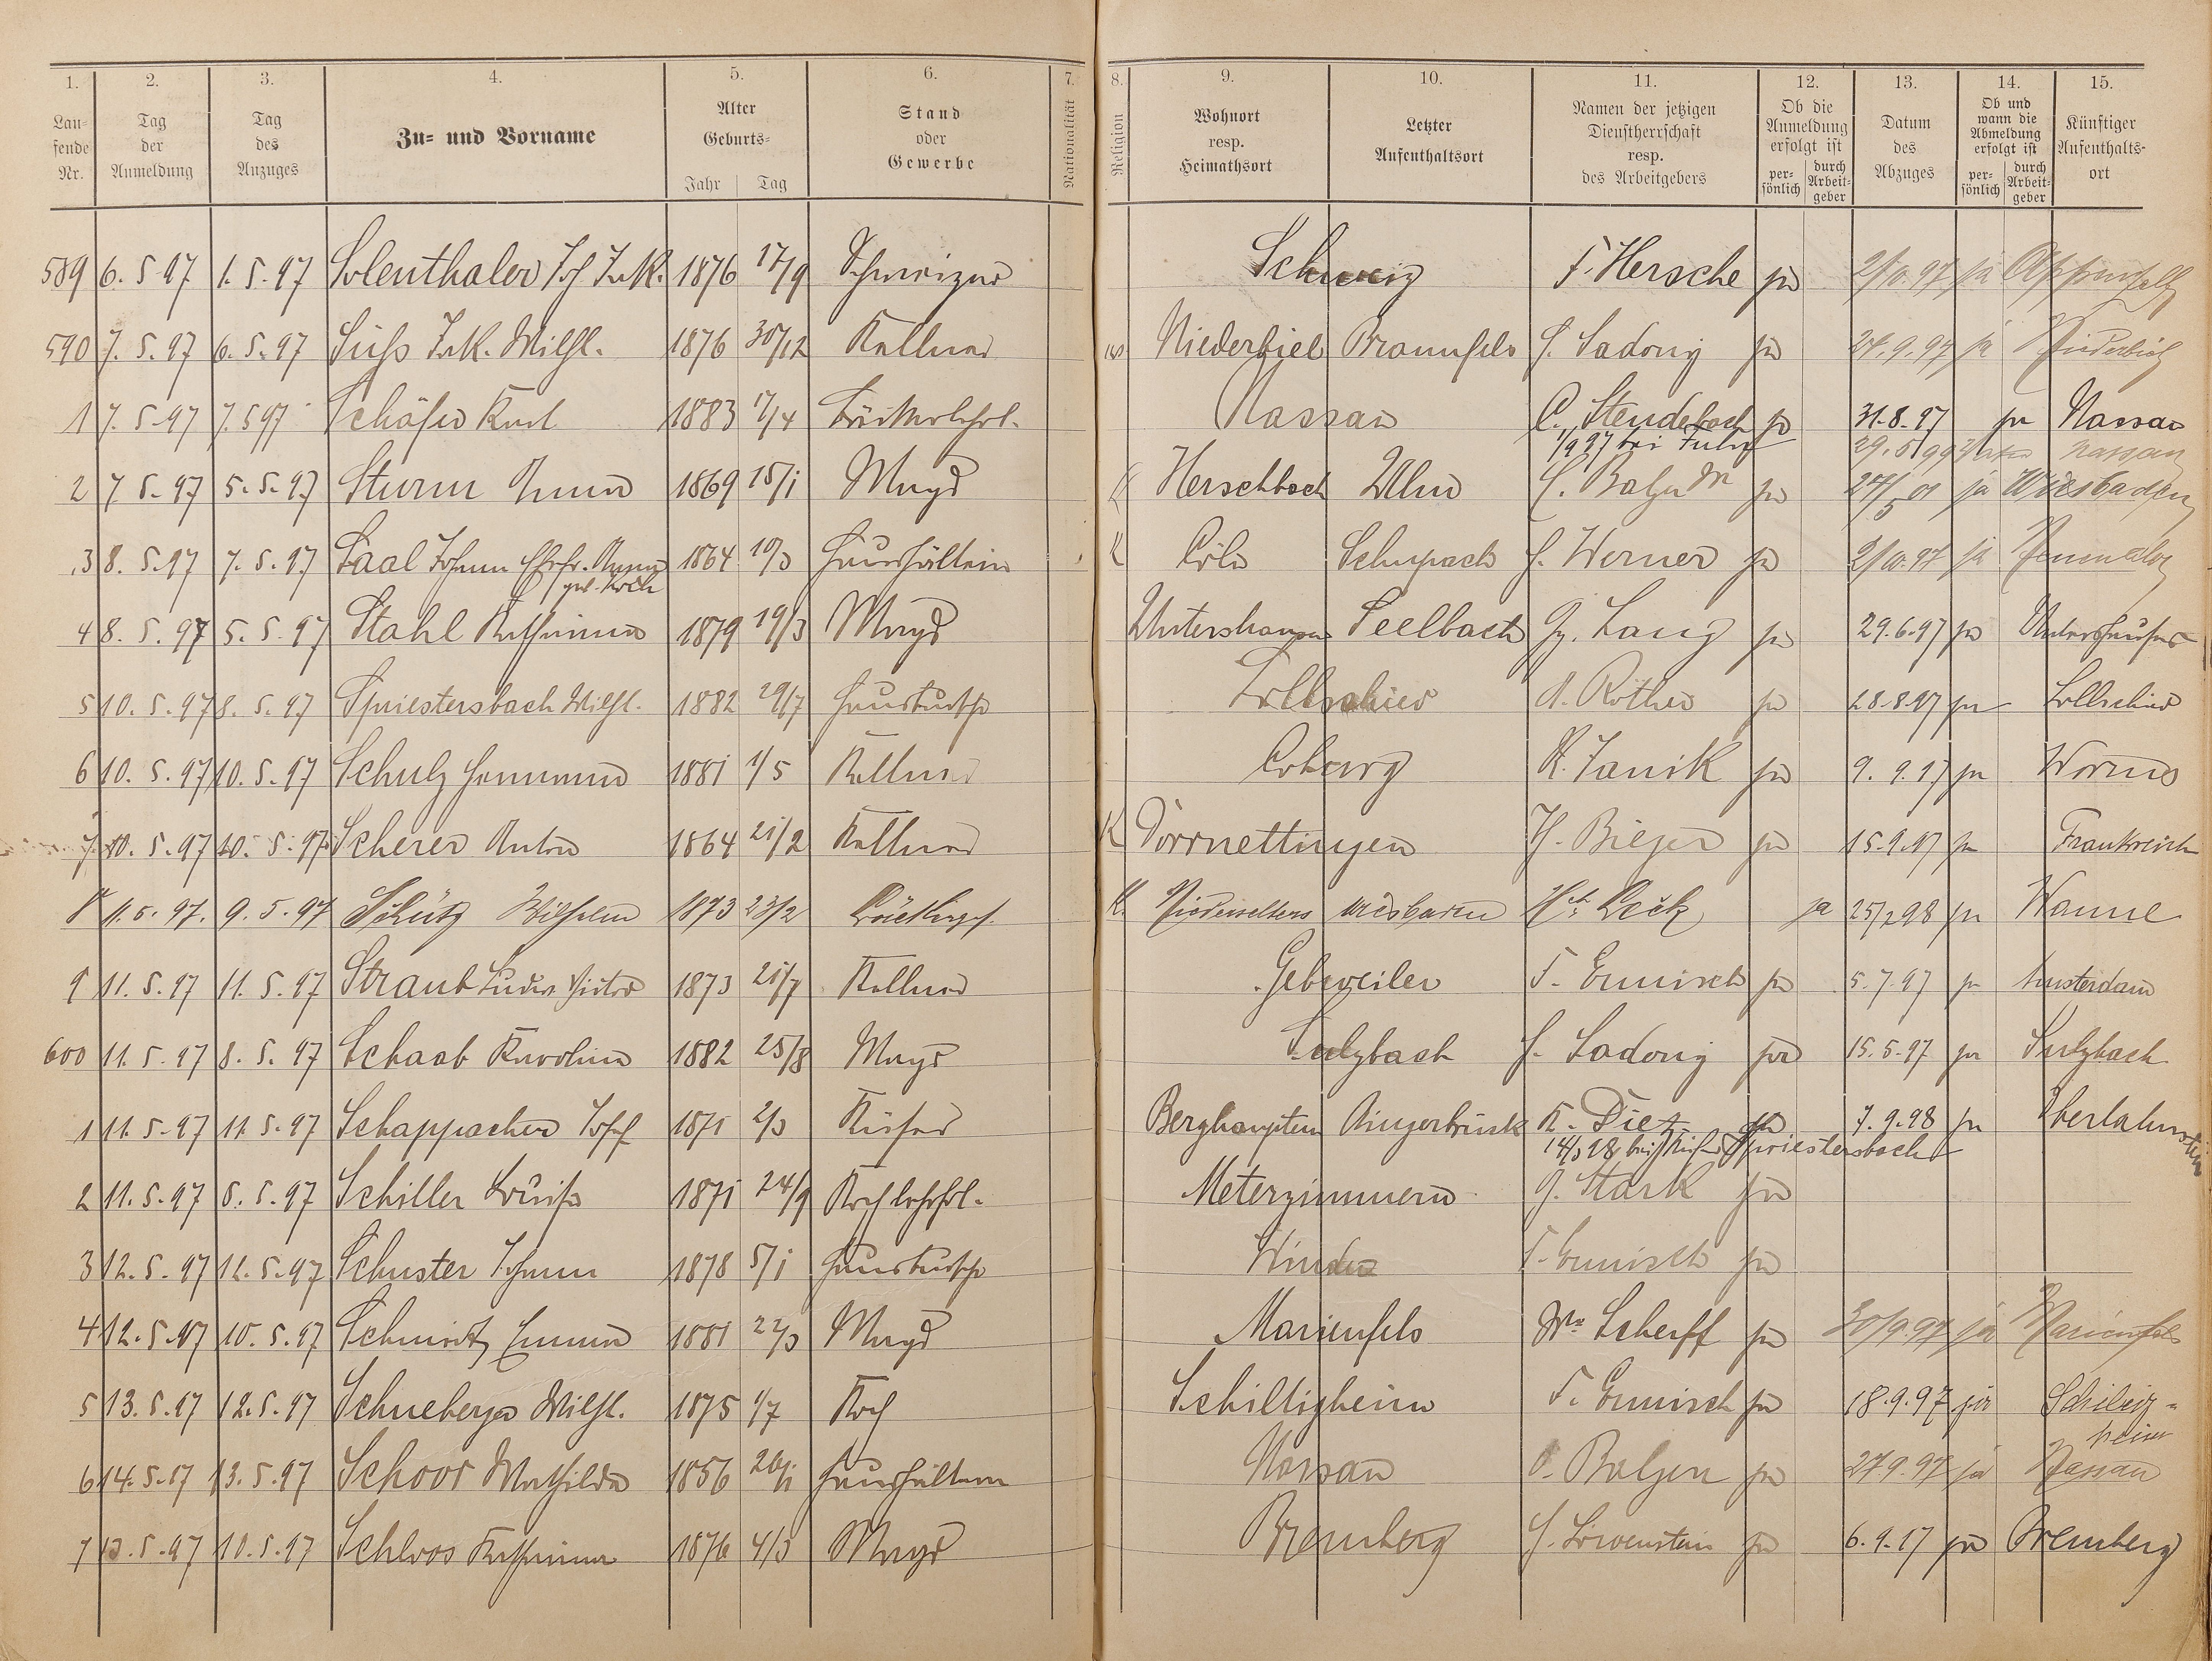 1. 2. 3. 4. 5. 6. 7. 8. 9. 10. 11. 12. 13. 14. 15.
Laufende Nr.
Tag der Anmeldung
Tag des Anzuges
Zu- und Vorname
Alter
Geburts-
Jahr Tag
Stand oder Gewerbe
Nationalität
Religion
Wohnort resp. Heimathsort
Letzter Aufenthaltsort
Namen der jetzigen Dienstherrschaft resp. des Arbeitgebers
Ob die Anmeldung erfolgt ist
persönlich durch Arbeitgeber
Datum des Abzuges
Ob und wann die Abmeldung erfolgt ist
persönlich durch Arbeitgeber
Künftiger Aufenthaltsort
589 6.5.97 1.5.97 Solenthaler Joh. Jak. 1876 17/9 Schweizer Schweiz F. Hersche ja 2/10.97 ja
590 7.5.97 6.5.97 Süß Jak. Wilh. 1876 30/12 Kellner Niederbiel Braunfels H. Sadony ja 24.9.97 ja Niederbiel
1 7.5.97 7.5.97 Schäfer Karl 1883 17/4 Nassau C. Steudebach ja 31.8.97 ja Nassau
1/9 97 bei 29.5.99 Nassau
2 7.5.97 5.5.97 Sturm Anna 1869 15/1 Magd K Herschbach Ulm C. Balzer ja 27/5 01 ja Wiesbaden
3 8.5.97 7.5.97 Saal Johann Ehefr. Anna 1864 10/3 Haushälterin K Cöln Schupach H. Werner ja 2/10.97 ja
geb. Koch
4 8.5.97 5.5.97 Stahl Katharina 1879 19/3 Magd Untershausen Seelbach Gg. Lang ja 29.6.97 ja Untershausen
5 10.5.97 8.5.97 Spriestersbach Wilh. 1882 29/7 Hausbursche Zollschied A. Rother ja 28.8.97 ja Zollschied
6 10.5.97 10.5.97 Schulz Hermann 1881 1/5 Kellner Coburg K. Janik ja 9.9.97 ja Worms
7 10.5.97 10.5.97 Scherer Anton 1864 21/2 Kellner K Dörrnettingen H. Bieger ja 15.9.97 ja Frankreich
8 11.5.97. 9.5.97 Schütz Wilhelm 1873 23/2 K. Niederselters Wiesbaden ja 25/2 98 ja Wanne
9 11.5.97 11.5.97 Straub Ludw. Viktor 1873 21/7 Kellner Gebweiler F. Ermisch ja 5.7.97 ja Amsterdam
600 11.5.97 8.5.97 Schaab Karolina 1882 25/8 Magd Sulzbach H. Sadony ja 15.5.97 ja Sulzbach
1 11.5.97 11.5.97 Schappacher Josef 1871 2/3 Küfer Berghaupten Bingerbrück K. Dietz ja 7.9.98 ja Oberlahnstein
14/3 98 bei Küfer Spriestersbach
2 11.5.97 8.5.97 Schiller Louise 1871 24/9 Meterzimmern G. Stark ja
3 12.5.97 12.5.97 Schuster Johann 1878 5/1 Hausbursche Winden F. Ermisch ja
4 12.5.97 10.5.97 Schmidt Emma 1881 22/3 Magd Marienfels Ww. Scherff ja 30/9.97 ja Marienfels
5 13.5.97 12.5.97 Schneberger Wilh. 1875 1/7 Koch Schiltigheim F. Ermisch ja 18.9.97 ja
6 14.5.97 13.5.97 Schoor Mathilda 1856 26/1 Haushälterin Nassau O. Balzer ja 27.9.97 ja Nassau
7 13.5.97 10.5.97 Schloos Katharina 1876 4/3 Magd Bremberg H. Löwenstein ja 6.9.97 ja Bremberg